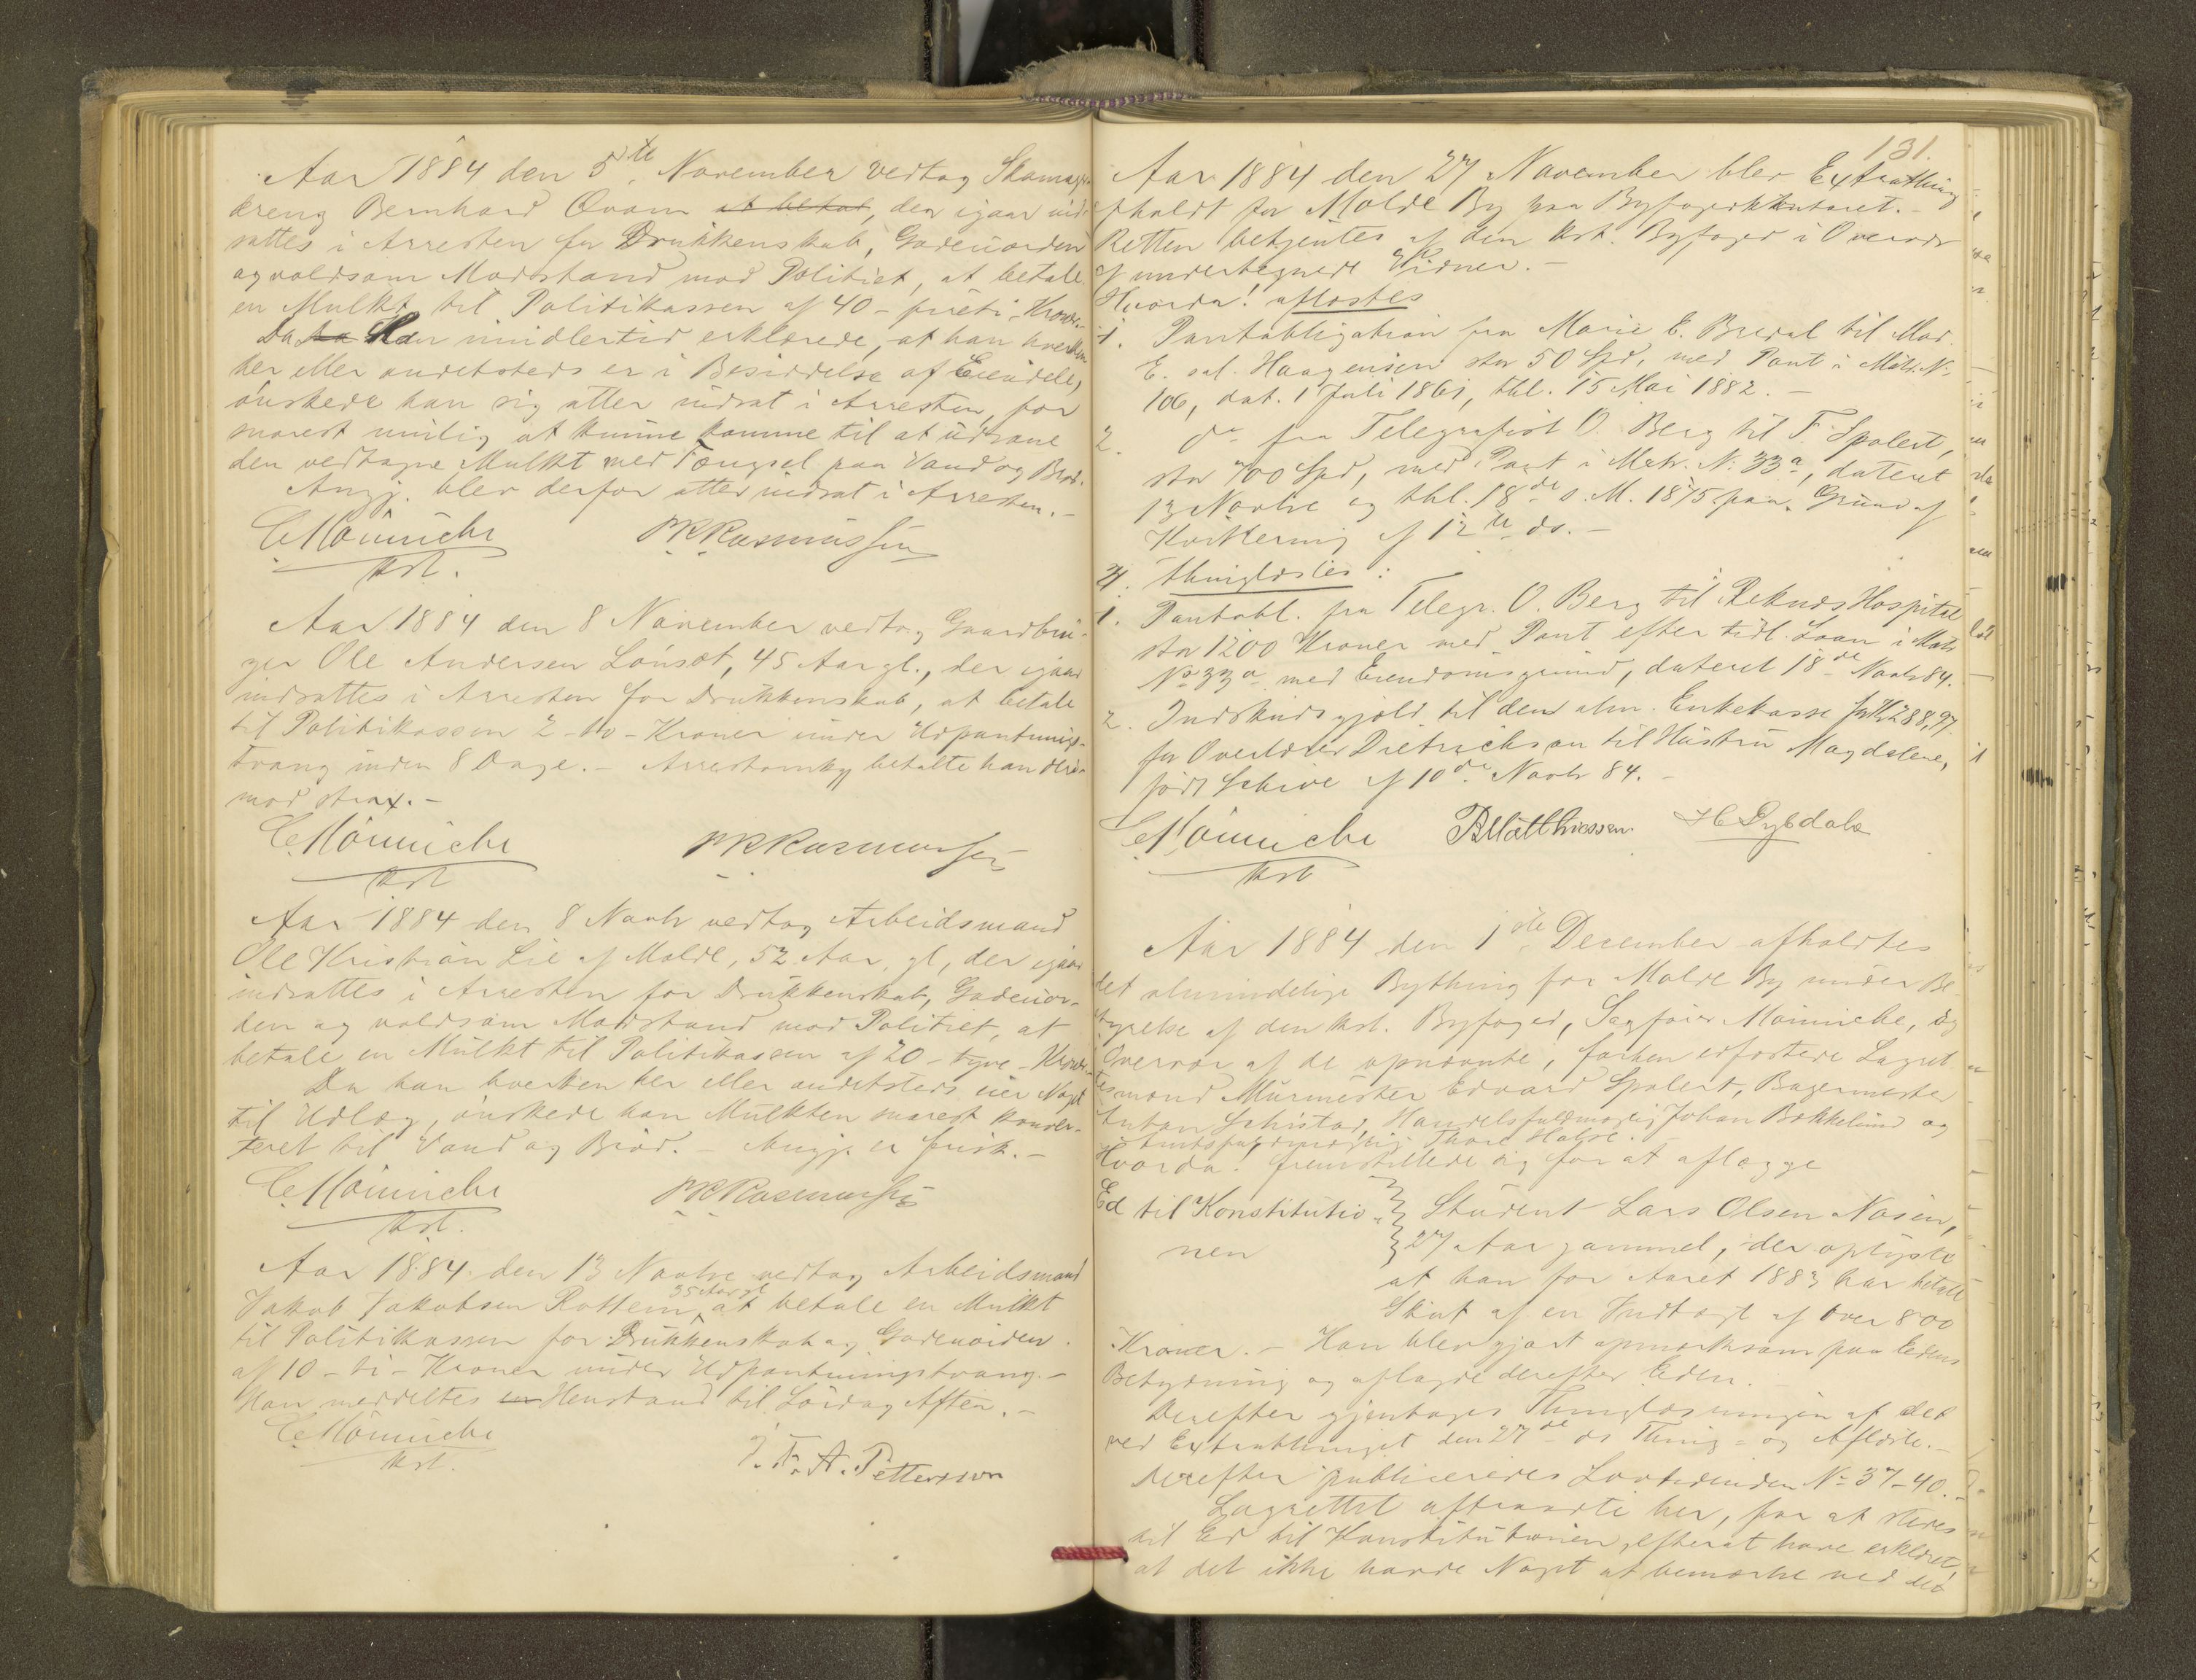 Aar 1884 den 5te November vedtog Skomager-
dreng Bernhard Qvam at betal, der igaar ind-
sattes i Arresten for Drukkenskab, Gadeuorden
og voldsom Modstand mod Politiet, at betale
en Mulkt til Politikassen af 40 - fireti - Kroner.
Da han imidlertid erklærede, at han hverken
her eller andetsteds er i Besiddelse af Eiendele,
ønskede han sig atter indsat i Arresten, for
snarest mulig at kunne komme til at udsone
den vedtagne Mulkt med Fængsel paa Vand og Brød.
Angj. blev derfor atter indsat i Arresten. -
C Mönniche PK Rasmussen
kst.
Aar 1884 den 8 November vedtog Gaardbru-
ger Ole Andersen Lønset, 45 Aar gl., der igaar
indsattes i Arresten for Drukkenskab, at betale
til Politikassen 2 - to - Kroner under Udpantnings-
tvang inden 8 Dage. - betalte han
mod strax. -
C Mönniche PK Rasmussen
kst
Aar 1884 den 8 Novbr vedtog Arbeidsmand
Ole Kristian Lie af Molde, 52 Aar gl, der igaar
indsattes i Arresten for Drukkenskab, Gadeuor-
den og voldsom Modstand mod Politiet, at
betale en Mulkt til Politikassen af 20 - tyve - Kroner.
Da han hverken her eller andetsteds eier Noget
til Udlæg, ønskede han Mulkten snarest konver-
teret til Vand og Brød. - Angj. er frisk. -
C Mönniche PK Rasmussen
kst.
Aar 1884 den 13 Novbr vedtog Arbeidsmand
35 Aar gl
Jakob Jakobsen Rottem, at betale en Mulkt
til Politikassen for Drukkenskab og Gadeuorden
af 10 - ti - Kroner under Udpantningstvang. -
Han meddeltes en Henstand til Lørdag Aften. -
C Mönniche
kst. J. F. A. Pettersson
131.
Aar 1884 den 27 November blev Extrathing
afholdt for Molde By paa Byfogedkontoret. -
Retten betjentes af den kst. Byfoged i Overvær
af undertegnede Vidner. -
Hvorda! aflæstes
1. Pantobligation fra Marie C. Bredal til Mad.
E. sal. Haagensen stor 50 Spd, med Pant i Matr. No
106, dat. 1 Juli 1861, thl. 15 Mai 1882. -
2. do fra Telegrafist O. Berg til F. Spolert,
stor 700 Spd, med Pant i Matr. No 33a, dateret
13 Novbr og thl. 18de s. M. 1875 paa Grund af
Kvittering af 12te ds. -
thinglæstes:
1. Pantobl. fra Telegr. O. Berg til Reknes Hospital
stor 1200 Kroner med Pant efter tidl. Laan i Matr
No 33a med Eiendomsgrund, dateret 18de Novbr 84.
2. Indskudsgjæld til den alm. Enkekasse 288,97
for Overlærer Dietrichson til Hustru Magdalene,
født Schive af 10de Novbr 84. -
C Mönniche B Matthiessen H Dybdahl
kst
Aar 1884 den 1ste December afholdtes
det almindelige Bything for Molde By under Be-
styrelse af den kst. Byfoged, Sagfører Mönniche, og
Overvær af de opnævnte, forhen edfæstede Lagret-
tesmænd Murmester Edvard Spolert, Bagermester
Anton Schistad, Handelsfuldmægtig Johan Bakkelund og
Amtsfuldmægtig Thore Halse.
Hvorda! fremstillede sig for at aflægge
Ed til Konstitutio- Student Lars Olsen Nosen,
nen 27 Aar gammel, der oplyste
at han for Aaret 1883 har betalt
Skat af en Indtægt af over 800
Kroner. - Han blev gjort opmærksom paa Edens
Betydning og aflagde derefter Eden. -
Derefter gjentoges Thinglæsningen af det
ved Extrathinget den 27de ds Thing- og Aflæste. -
Derefter publiceredes Lovtidenden No 37-40. -
Lagrettet aftraadte her, for at stedes
til Ed til Konstitutionen, efterat have erklæret,
at det ikke havde Noget at bemærke ved de